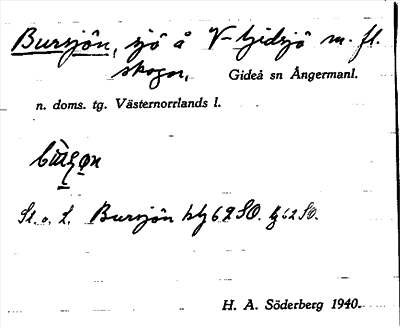 Bursjön, sjö å V-Gidsjö m. fl.
skogar, Gideå sn Ångermanl.
n. doms. tg. Västernorrlands l.
St. o. L. Bursjön hbl 62 SO. bl 62 SO.
H. A. Söderberg 1940.